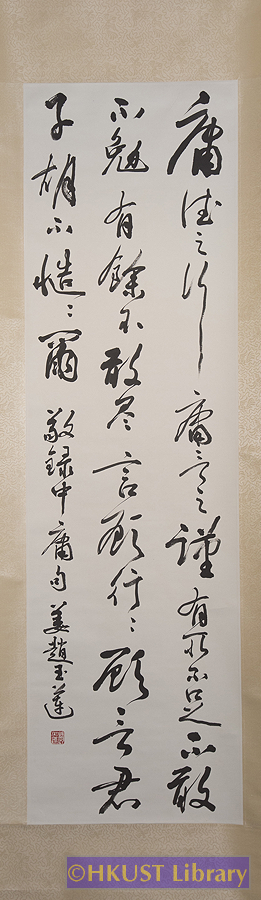 庸德之行庸言之謹有所不足不敢
不勉有餘不敢尽言顧行〻顧言君
子胡不慥〻爾
敬録中庸句 姜趙玉蓮
©HKUST Library